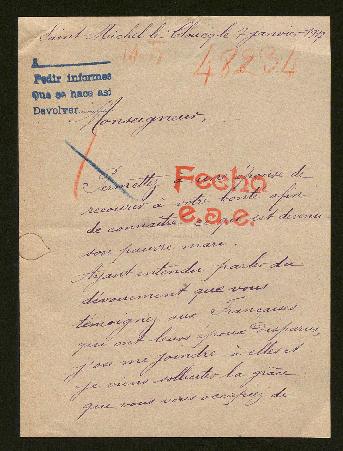 Saint Michel le Cloucq le 7 janvier 1917
48234
A
Pedir informes
Que se hace así
Devolver
Monseigneur,
Permettez à une épouse de
Fecho
recourir à votre bonté afin
e.a.e.
de connaître ce qu'est devenu
son pauvre mari.
Ayant entendu parler du
dévouement que vous
témoignez aux Françaises
qui ont leurs époux disparus,
j'ose me joindre à elles et
je viens solliciter la grâce
que vous vous occupiez de